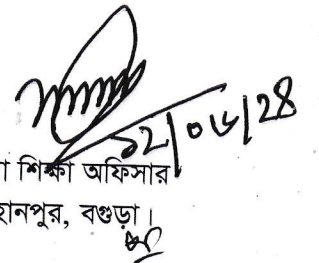 ১২/০৬/২৪
া শিক্ষা অফিসার
হানপুর, বগুড়া।